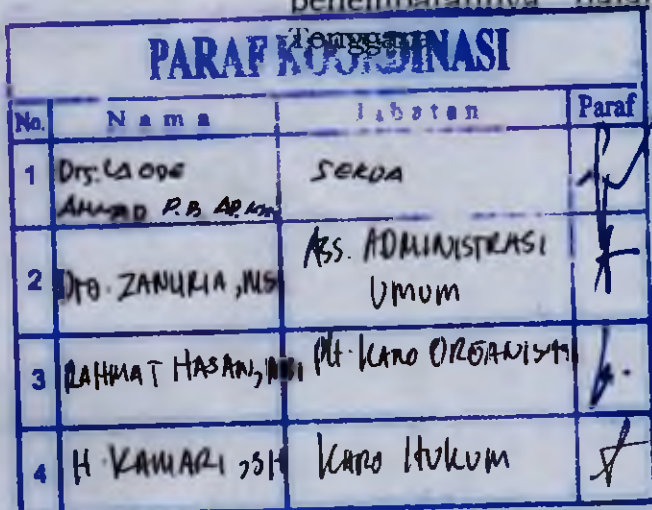 Tenggara
PARAF KOORDINASI
No. Nama Jabatan Paraf
1 Drs. LA ODE SEKDA
AHMAD P.B AP.
2 Dra. ZANURIA, MSi ASS. ADMINISTRASI
UMUM
3 RAHMAT HASAN, Plt. KARO ORGANISASI
4 H KAMARI, SH KARO HUKUM